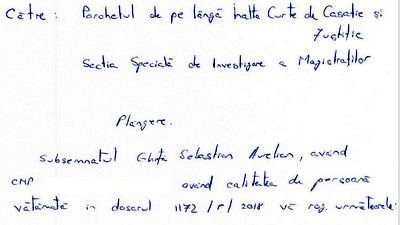 Către: Parchetul de pe lângă Înalta Curte de Casație și
Justiție
Secția Specială de Investigare a Magistraților
Plângere.
Subsemnatul Ghiță Sebastian Aurelian, având
CNP având calitatea de persoană
vătămată în dosarul 1172/P/2018 vă rog următoarele: